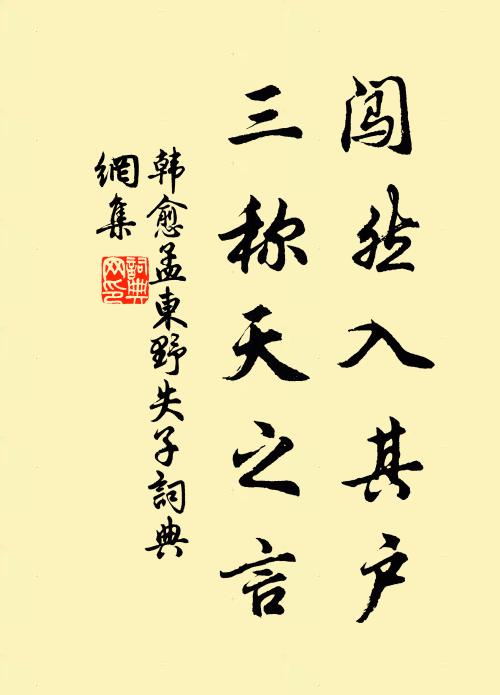 闯然入其户
三称天之言
韩愈孟東野失子詞典
網集
詞典
网印